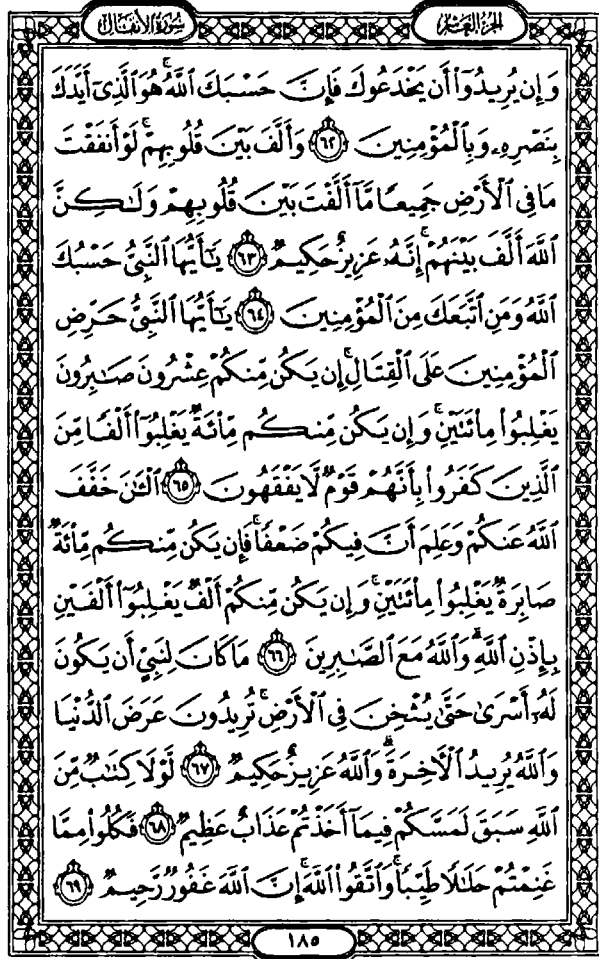 الجزء العاشر
سورة الأنفال
وَإِن يُرِيدُوٓا۟ أَن يَخْدَعُوكَ فَإِنَّ حَسْبَكَ ٱللَّهُ ۚ هُوَ ٱلَّذِىٓ أَيَّدَكَ
بِنَصْرِهِۦ وَبِٱلْمُؤْمِنِينَ ﴿٦٢﴾ وَأَلَّفَ بَيْنَ قُلُوبِهِمْ ۚ لَوْ أَنفَقْتَ
مَا فِى ٱلْأَرْضِ جَمِيعًا مَّآ أَلَّفْتَ بَيْنَ قُلُوبِهِمْ وَلَٰكِنَّ
ٱللَّهَ أَلَّفَ بَيْنَهُمْ ۚ إِنَّهُۥ عَزِيزٌ حَكِيمٌ ﴿٦٣﴾ يَٰٓأَيُّهَا ٱلنَّبِىُّ حَسْبُكَ
ٱللَّهُ وَمَنِ ٱتَّبَعَكَ مِنَ ٱلْمُؤْمِنِينَ ﴿٦٤﴾ يَٰٓأَيُّهَا ٱلنَّبِىُّ حَرِّضِ
ٱلْمُؤْمِنِينَ عَلَى ٱلْقِتَالِ ۚ إِن يَكُن مِّنكُمْ عِشْرُونَ صَٰبِرُونَ
يَغْلِبُوا۟ مِا۟ئَتَيْنِ ۚ وَإِن يَكُن مِّنكُم مِّا۟ئَةٌ يَغْلِبُوٓا۟ أَلْفًا مِّنَ
ٱلَّذِينَ كَفَرُوا۟ بِأَنَّهُمْ قَوْمٌ لَّا يَفْقَهُونَ ﴿٦٥﴾ ٱلْـَٰٔنَ خَفَّفَ
ٱللَّهُ عَنكُمْ وَعَلِمَ أَنَّ فِيكُمْ ضَعْفًا ۚ فَإِن يَكُن مِّنكُم مِّا۟ئَةٌ
صَابِرَةٌ يَغْلِبُوا۟ مِا۟ئَتَيْنِ ۚ وَإِن يَكُن مِّنكُمْ أَلْفٌ يَغْلِبُوٓا۟ أَلْفَيْنِ
بِإِذْنِ ٱللَّهِ ۗ وَٱللَّهُ مَعَ ٱلصَّٰبِرِينَ ﴿٦٦﴾ مَا كَانَ لِنَبِىٍّ أَن يَكُونَ
لَهُۥٓ أَسْرَىٰ حَتَّىٰ يُثْخِنَ فِى ٱلْأَرْضِ ۚ تُرِيدُونَ عَرَضَ ٱلدُّنْيَا
وَٱللَّهُ يُرِيدُ ٱلْـَٔاخِرَةَ ۗ وَٱللَّهُ عَزِيزٌ حَكِيمٌ ﴿٦٧﴾ لَّوْلَا كِتَٰبٌ مِّنَ
ٱللَّهِ سَبَقَ لَمَسَّكُمْ فِيمَآ أَخَذْتُمْ عَذَابٌ عَظِيمٌ ﴿٦٨﴾ فَكُلُوا۟ مِمَّا
غَنِمْتُمْ حَلَٰلًا طَيِّبًا ۚ وَٱتَّقُوا۟ ٱللَّهَ ۚ إِنَّ ٱللَّهَ غَفُورٌ رَّحِيمٌ ﴿٦٩﴾
١٨٥